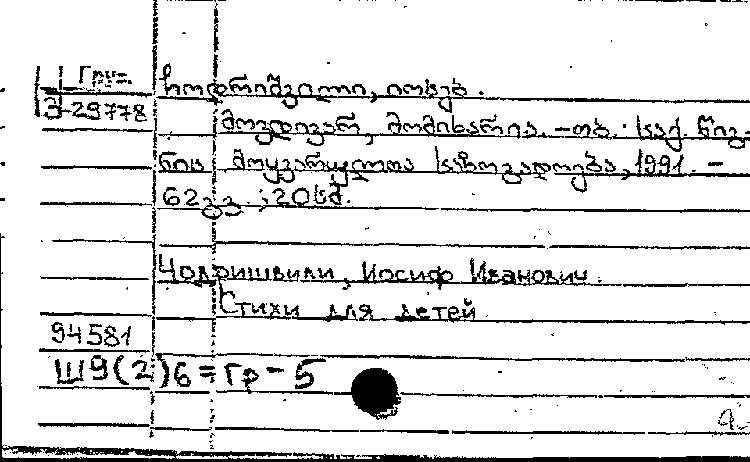 Груз.
3-29778
ჩოდრიშვილი, იოსებ.
მოვდივარ, მომიხარია. – თბ. : საქ. წიგ-
ნის მოყვარულთა საზოგადოება, 1991. –
62გვ. ; 20სმ.
Чодришвили, Иосиф Иванович.
Стихи для детей
94581
Ш9(2)6=Гр-5